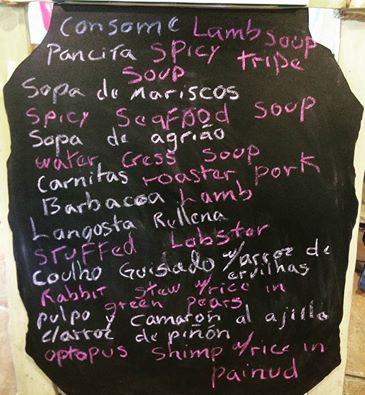 Consome Lamb Soup
Pancita Spicy tripe
Soup
Sopa de Mariscos
Spicy Seafood Soup
Sopa de agrião
water Cress Soup
Carnitas roaster pork
Barbacoa Lamb
Langosta Rellena
Stuffed Lobster
Coulho Guisado w/arroz de
ervilhas
Rabbit stew w/rice in
green pears
pulpo y camaron al ajillo
c/arroz de piñón
optopus shimp w/rice in
painud